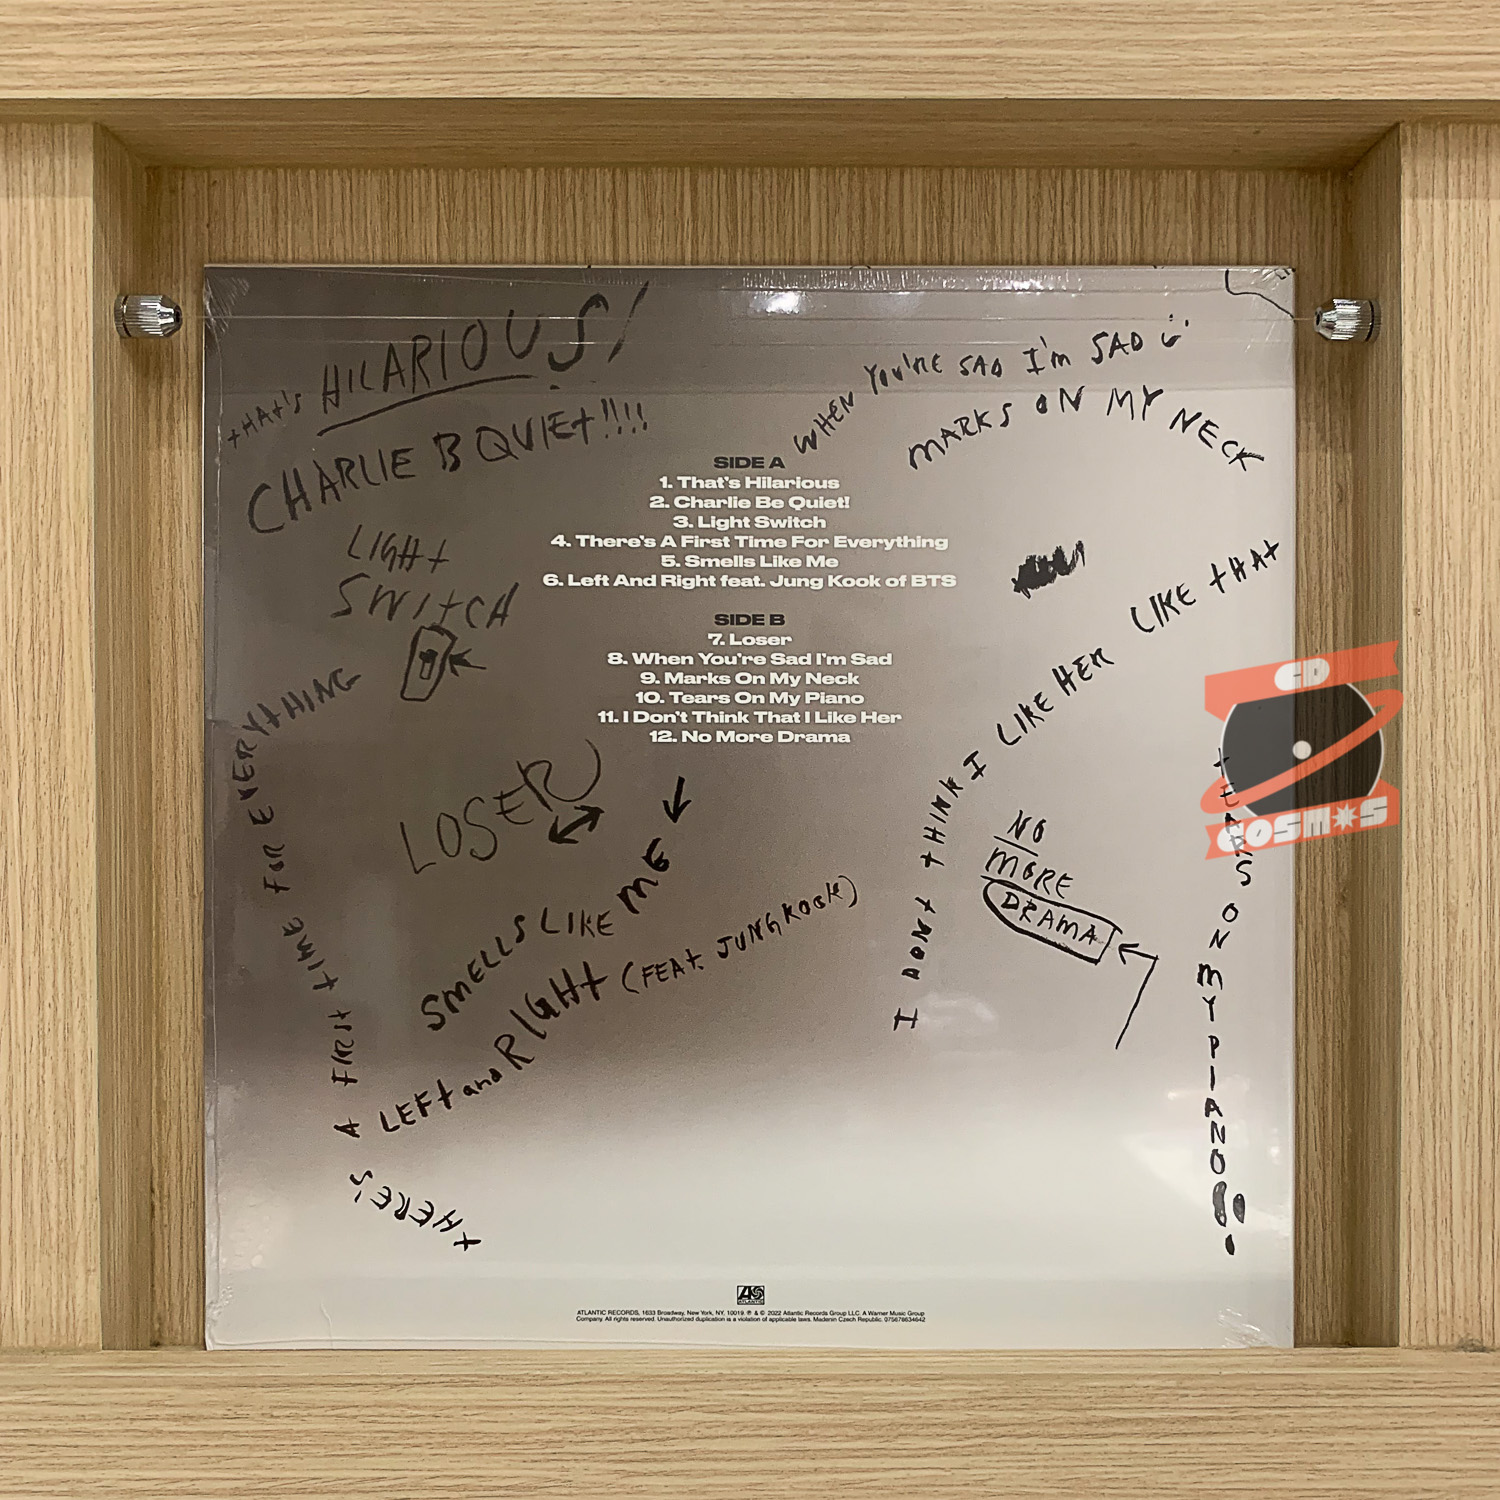 tHAt'S HILARIOUS!
CHARLIE B QUIEt!!!!
WHEN YOU'RE SAD I'm SAD
MARKS ON MY NECK
SIDE A
1. That's Hilarious
2. Charlie Be Quiet!
3. Light Switch
4. There's A First Time For Everything
5. Smells Like Me
6. Left And Right feat. Jung Kook of BTS
SIDE B
7. Loser
8. When You're Sad I'm Sad
9. Marks On My Neck
10. Tears On My Piano
11. I Don't Think That I Like Her
12. No More Drama
LIGHt
SWItCH
tHERE'S A FIRSt tIME FOR EVERYtHING
LOSER
SMELLS LIKE ME
LEFt and RIGHt (FEAt. JUNGKOOK)
I DONt tHINK I LIKE HER LIKE tHAt
NO
MORE
DRAMA
tEARS ON MY PIANO!!
CD
COSMOS
ATLANTIC
ATLANTIC RECORDS, 1633 Broadway, New York, NY, 10019. ℗ & © 2022 Atlantic Records Group LLC. A Warner Music Group
Company. All rights reserved. Unauthorized duplication is a violation of applicable laws. Madenin Czech Republic. 075678634642